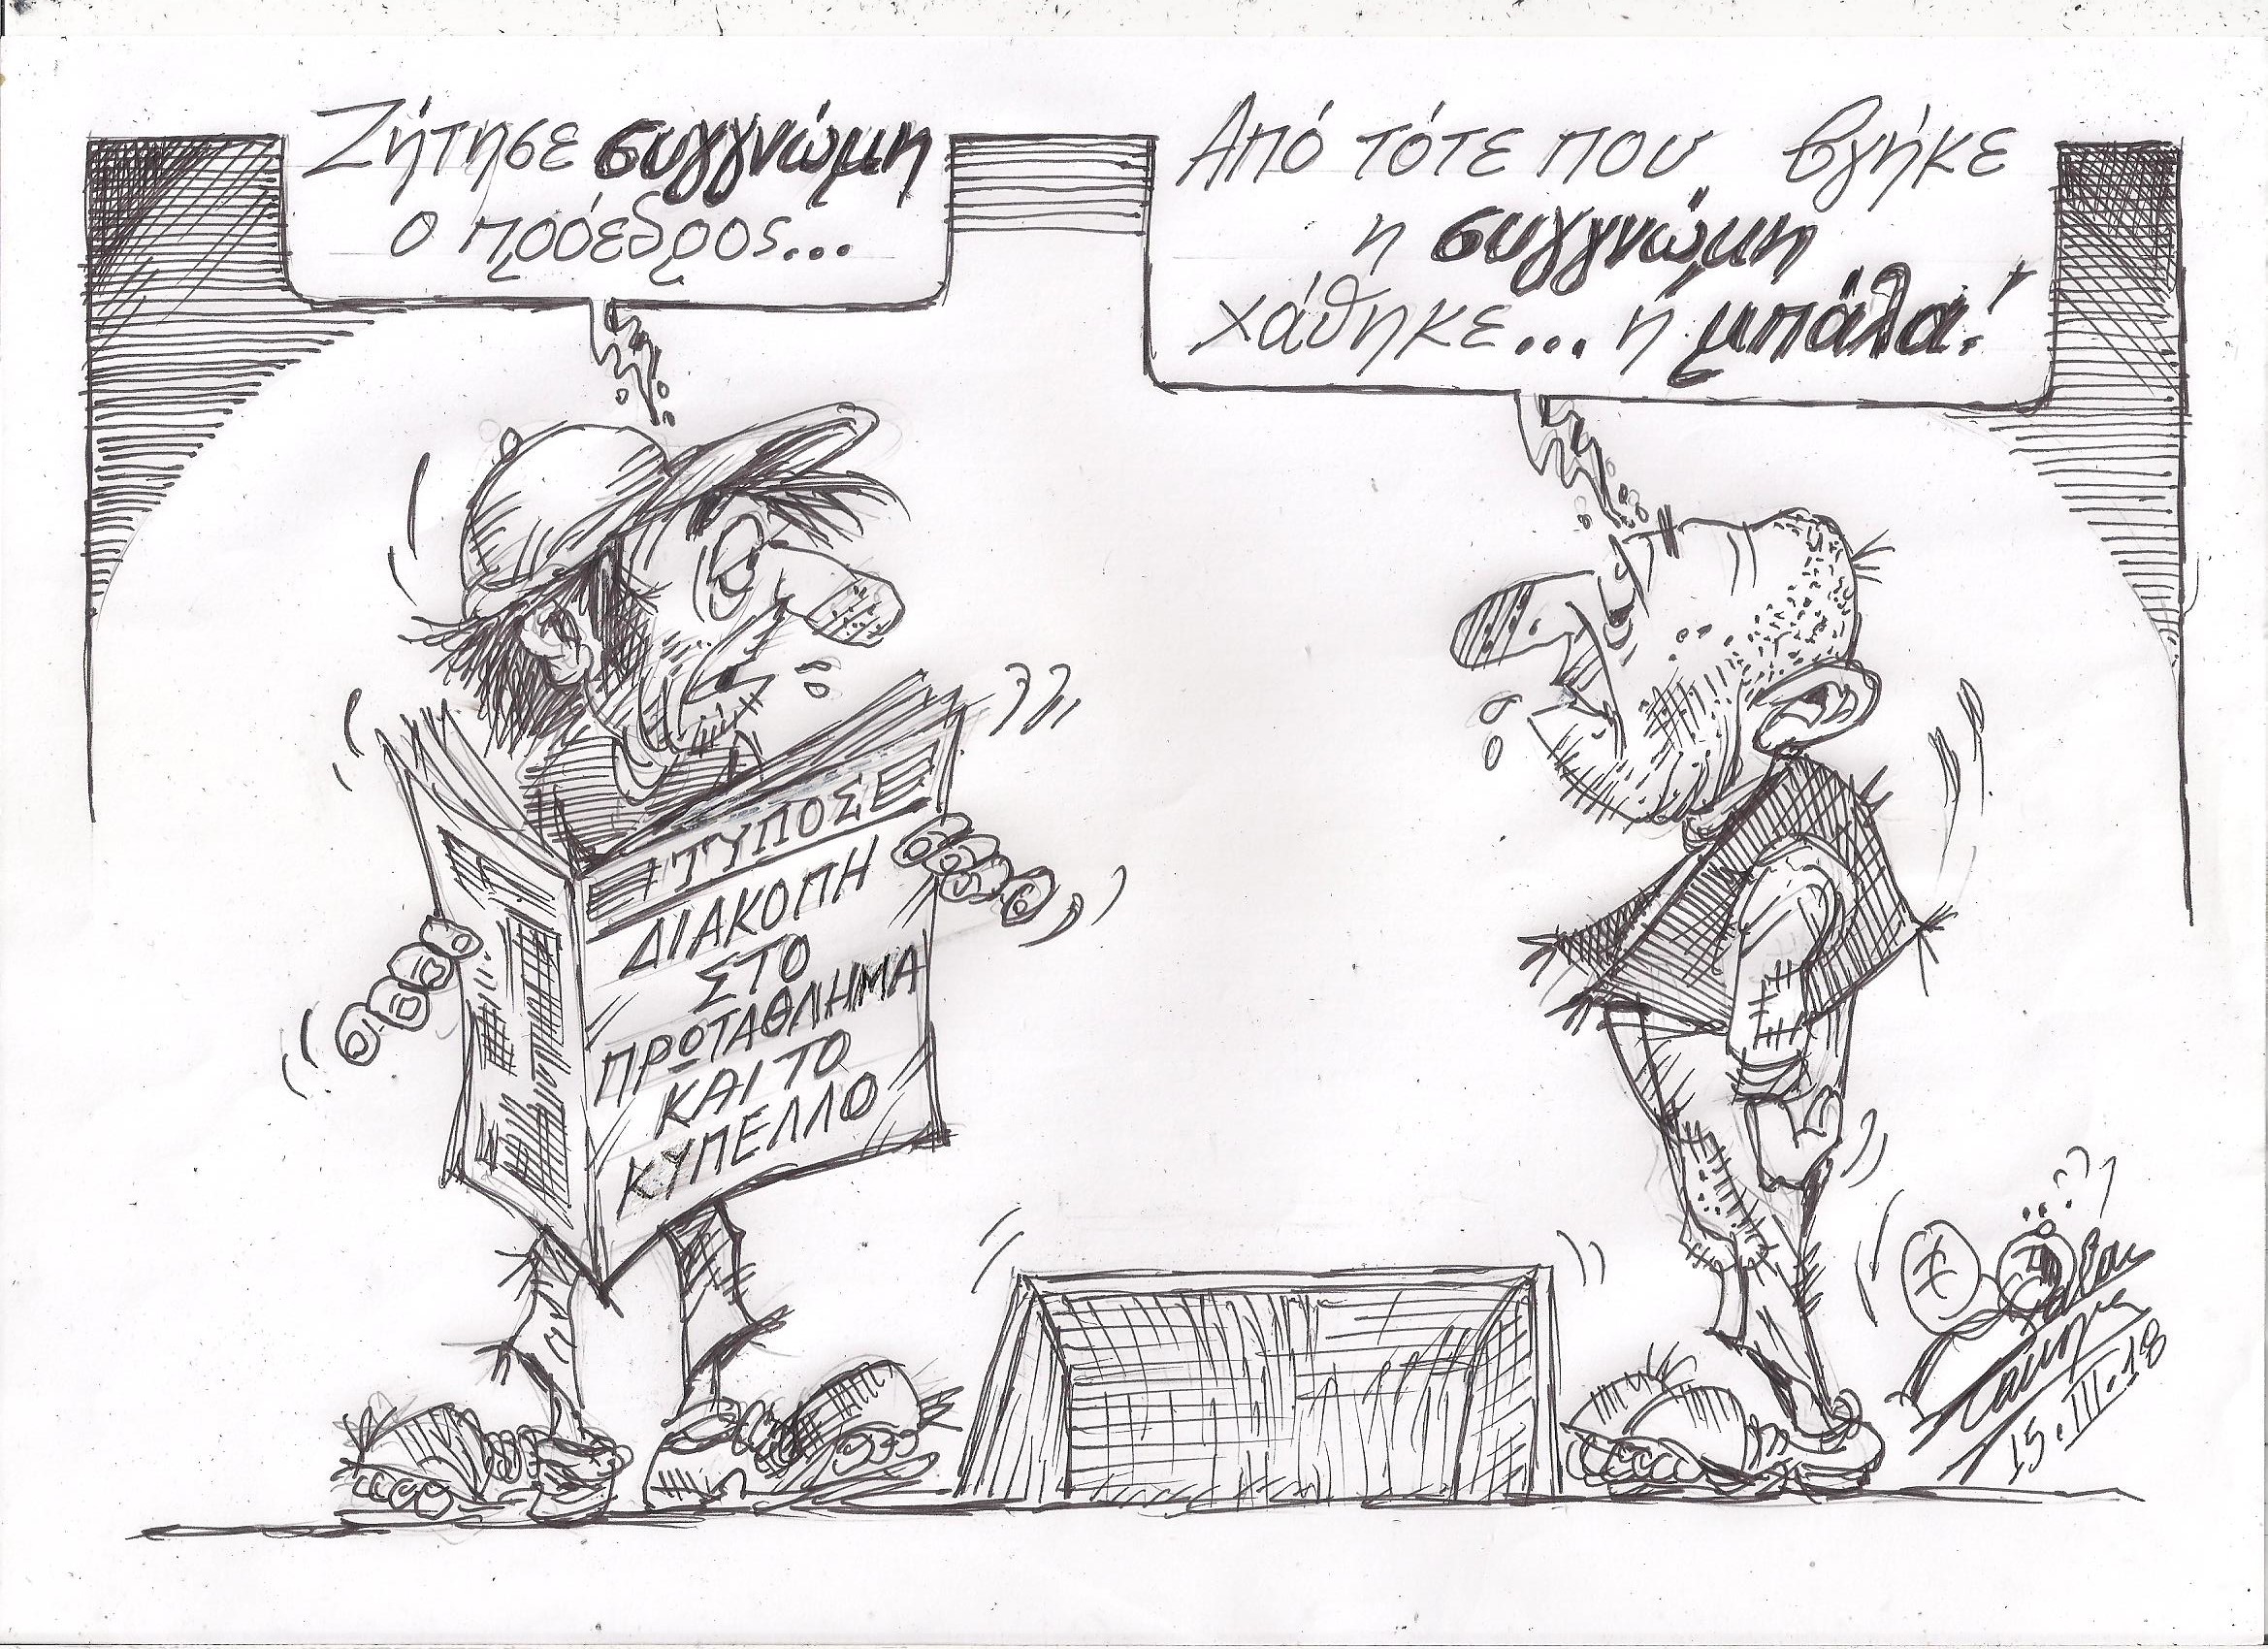 Ζήτησε συγγνώμη
ο πρόεδρος...
Από τότε που βγήκε
η συγγνώμη
χάθηκε... η μπάλα!
ΤΥΠΟΣ
ΔΙΑΚΟΠΗ
ΣΤΟ
ΠΡΩΤΑΘΛΗΜΑ
ΚΑΙ ΤΟ
ΚΥΠΕΛΛΟ
15.III.18